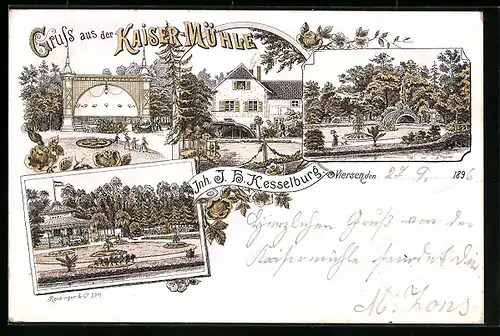 Gruss aus der KAISER-MÜHLE
Inh. J. H. Kesselburg
Viersen, den 27. 9. 1896
Herzlichen Gruß von der
Kaisermühle sendet Dir
M. Zons